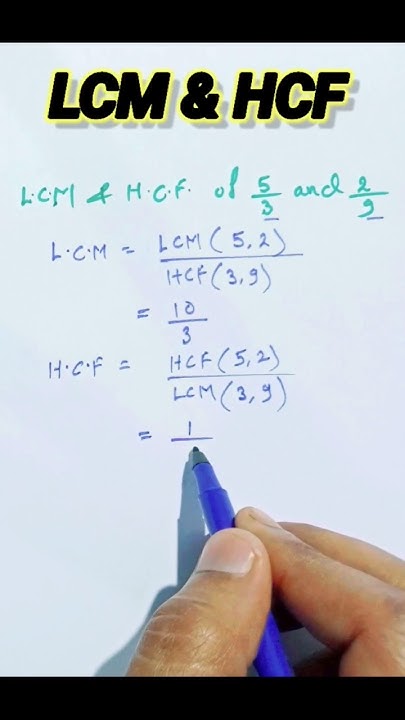 LCM & HCF
L.C.M & H.C.F. of 5/3 and 2/9
L.C.M = LCM(5,2)
HCF(3,9)
= 10
3
H.C.F = HCF(5,2)
LCM(3,9)
= 1